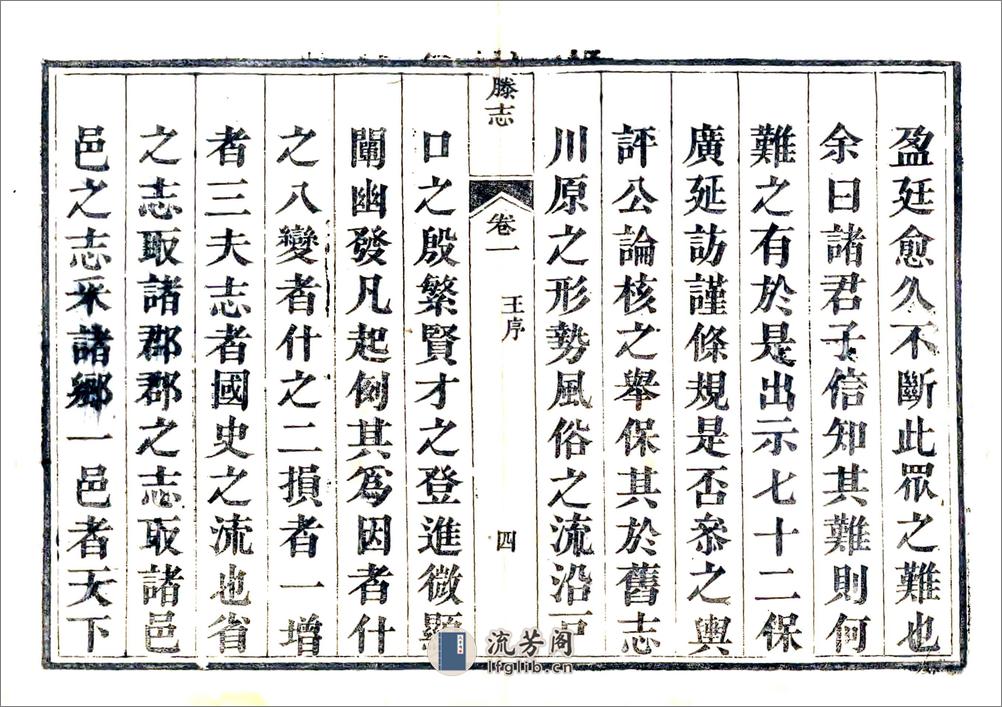 盈廷愈久不斷此眾之難也
余曰諸君子信知其難則何
難之有於是出示七十二保
廣延訪謹條規是否叅之輿
評公論核之舉保其於舊志
川原之形勢風俗之流沿戶
滕志 卷一 王序 四
口之殷繁賢才之登進微顯
闡幽發凡起例其爲因者什
之八變者什之二損者一增
者三夫志者國史之流也省
之志取諸郡郡之志取諸邑
邑之志采諸鄉一邑者天下
流芳阁
lfglib.cn